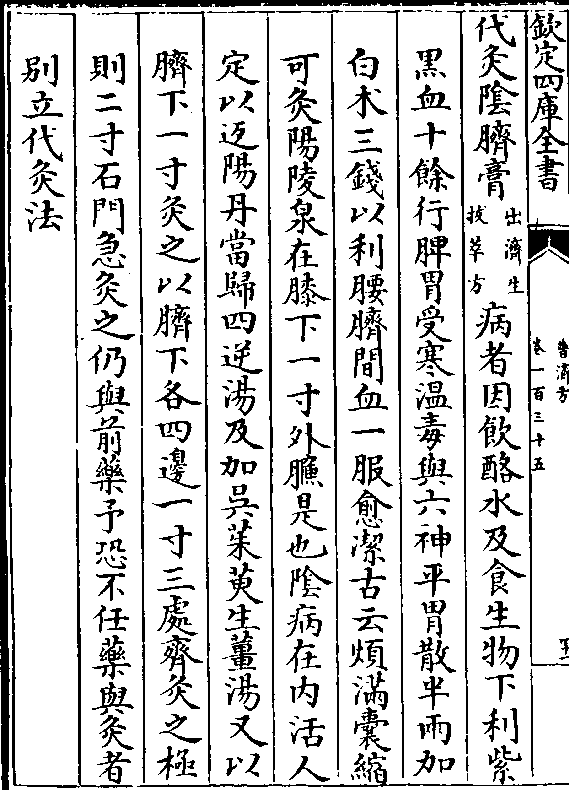 欽定四庫全書
普濟方
卷一百三十五
代灸陰臍膏出濟生拔萃方病者因飲酪水及食生物下利紫
黑血十餘行脾胃受寒溫毒與六神平胃散半兩加
白朮三錢以利腰臍間血一服愈潔古云煩滿囊縮
可灸陽陵泉在膝下一寸外臁是也陰病在内活人
定以返陽丹當歸四逆湯及加吳茱萸生薑湯又以
臍下一寸灸之以臍下各四邊一寸三處齊灸之極
則二寸石門急灸之仍與前藥予恐不任藥與灸者
別立代灸法